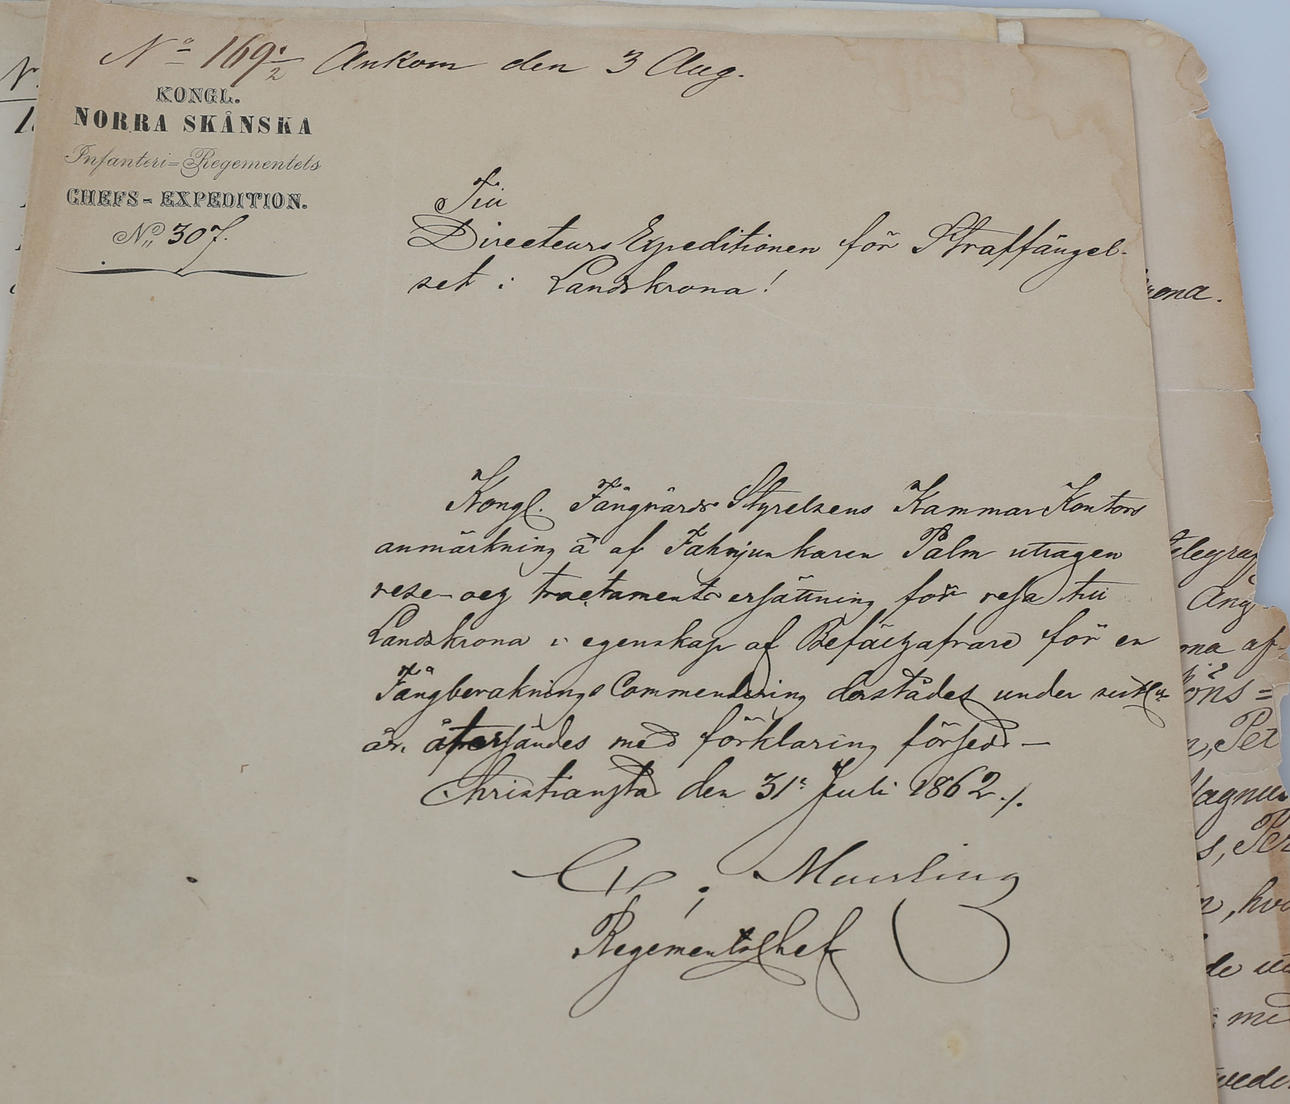 No 169 1/2 Ankom den 3 Aug.
KONGL.
NORRA SKÅNSKA
Infanteri=Regementets
CHEFS-EXPEDITION.
No 307.
Till
Directeurs Expeditionen för Straffängel-
set i Landskrona!
Kongl. Fångvårds Styrelsens Kammar Kontors
anmärkning å af Fahnjunkaren Palm uttagen
rese- och tractamentsersättning för resa till
Landskrona i egenskap af Befälhafvare för en
Fångbevaknings Commendering derstädes under sistl.
år, återsändes med förklaring försedd —
Christianstad den 31 Juli 1862 ./.
Munsling
Regementschef
rona.
Telegraf
Ång
ona af-
n, Per
Magnus
s, Per
n, hvi
de
me